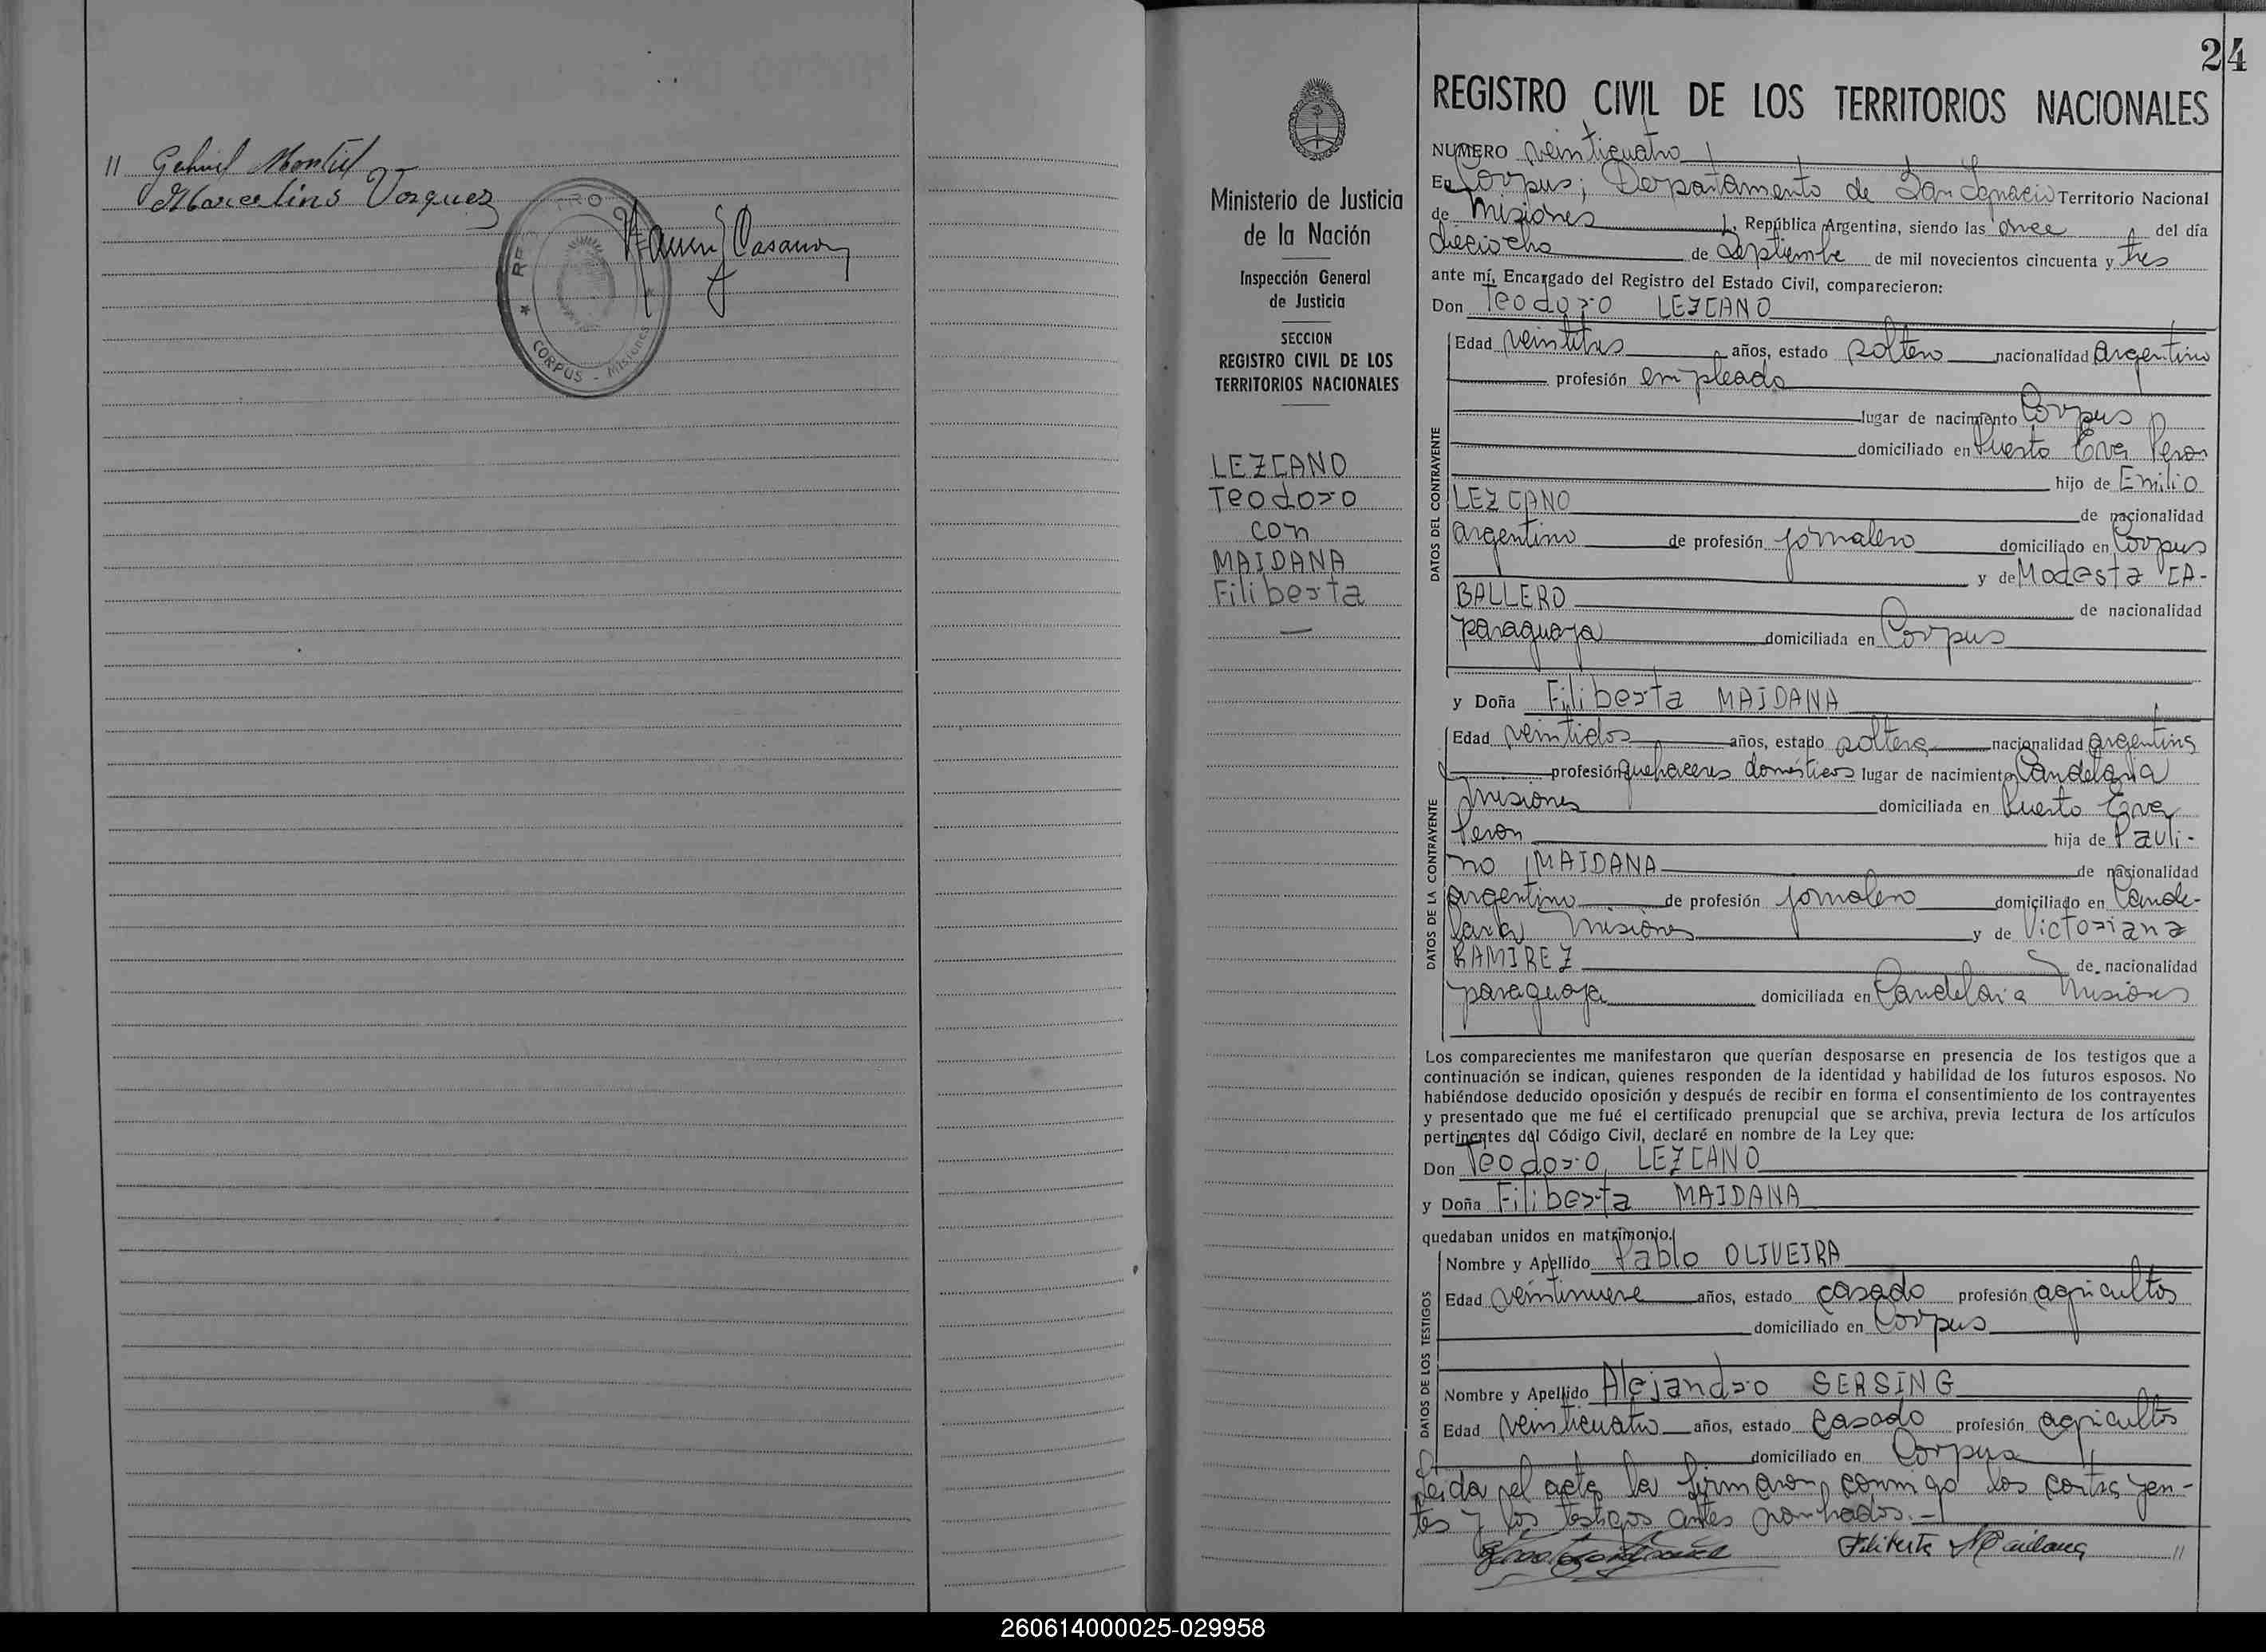 11 Gabriel Montiel
Marcelino Vazquez
REGISTRO
CORPUS - Misiones
24
REGISTRO CIVIL DE LOS TERRITORIOS NACIONALES
Ministerio de Justicia
de la Nación
Inspección General
de Justicia
SECCION
REGISTRO CIVIL DE LOS
TERRITORIOS NACIONALES
LEZCANO
Teodoro
con
MAIDANA
Filiberta
NUMERO veinticuatro
En Corpus; Departamento de San Ignacio Territorio Nacional
de Misiones República Argentina, siendo las once del día
dieciocho de Septiembre de mil novecientos cincuenta y tres
ante mí, Encargado del Registro del Estado Civil, comparecieron:
Don Teodoro LEZCANO
DATOS DEL CONTRAYENTE
Edad veintitres años, estado soltero nacionalidad argentino
profesión empleado
lugar de nacimiento Corpus
domiciliado en Puerto Eva Peron
hijo de Emilio
LEZCANO de nacionalidad
argentino de profesión jornalero domiciliado en Corpus
y de Modesta CA-
BALLERO de nacionalidad
paraguaya domiciliada en Corpus
y Doña Filiberta MAIDANA
DATOS DE LA CONTRAYENTE
Edad veintidos años, estado soltera nacionalidad argentina
profesión quehaceres domésticos lugar de nacimiento Candelaria
Misiones domiciliada en Puerto Eva
Peron hija de Pauli-
no MAIDANA de nacionalidad
argentino de profesión jornalero domiciliado en Cande-
laria Misiones y de Victoriana
RAMIREZ de nacionalidad
paraguaya domiciliada en Candelaria Misiones
Los comparecientes me manifestaron que querían desposarse en presencia de los testigos que a
continuación se indican, quienes responden de la identidad y habilidad de los futuros esposos. No
habiéndose deducido oposición y después de recibir en forma el consentimiento de los contrayentes
y presentado que me fué el certificado prenupcial que se archiva, previa lectura de los artículos
pertinentes del Código Civil, declaré en nombre de la Ley que:
Don Teodoro LEZCANO
y Doña Filiberta MAIDANA
quedaban unidos en matrimonio.
DATOS DE LOS TESTIGOS
Nombre y Apellido Pablo OLIVEIRA
Edad veintinueve años, estado casado profesión agricultor
domiciliado en Corpus
Nombre y Apellido Alejandro SERSING
Edad veinticuatro años, estado casado profesión agricultor
domiciliado en Corpus
Leida el acta la firmaron conmigo los contrayen-
tes y los testigos antes nombrados.-
Filiberta Maidana 11
260614000025-029958